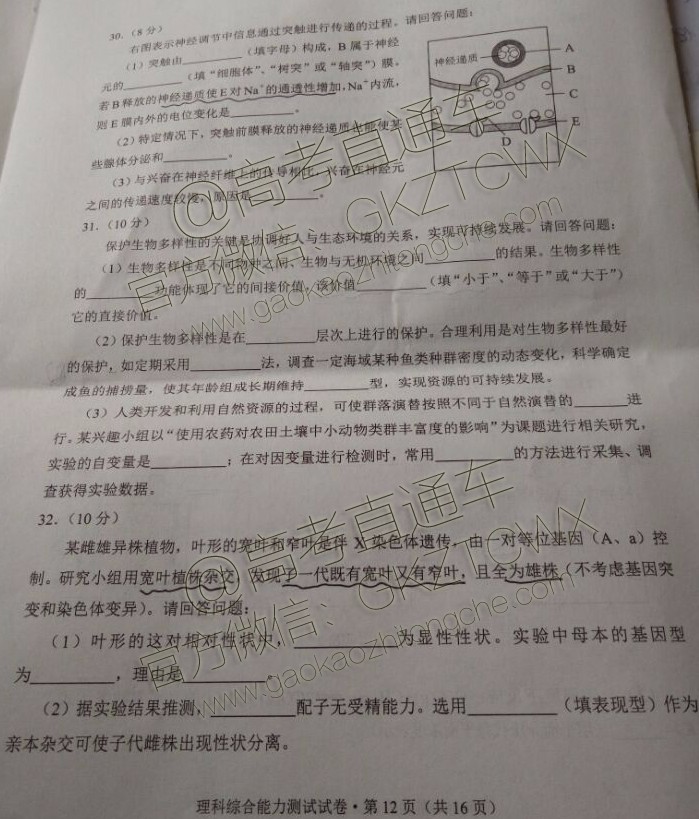 30.（8分）
右图表示神经调节中信息通过突触进行传递的过程。请回答问题：
（1）突触由________（填字母）构成，B属于神经
元的________（填“细胞体”、“树突”或“轴突”）膜。
若B释放的神经递质使E对Na⁺的通透性增加，Na⁺内流，
则E膜内外的电位变化是________。
（2）特定情况下，突触前膜释放的神经递质也能使某
些腺体分泌和________。
（3）与兴奋在神经纤维上的传导相比，兴奋在神经元
之间的传递速度较慢，原因是________。
神经递质
A
B
C
E
D
31.（10分）
保护生物多样性的关键是协调好人与生态环境的关系，实现可持续发展。请回答问题：
（1）生物多样性是不同物种之间、生物与无机环境之间________的结果。生物多样性
的________功能体现了它的间接价值，该价值________（填“小于”、“等于”或“大于”）
它的直接价值。
（2）保护生物多样性是在________层次上进行的保护。合理利用是对生物多样性最好
的保护，如定期采用________法，调查一定海域某种鱼类种群密度的动态变化，科学确定
成鱼的捕捞量，使其年龄组成长期维持________型，实现资源的可持续发展。
（3）人类开发和利用自然资源的过程，可使群落演替按照不同于自然演替的________进
行。某兴趣小组以“使用农药对农田土壤中小动物类群丰富度的影响”为课题进行相关研究，
实验的自变量是________；在对因变量进行检测时，常用________的方法进行采集、调
查获得实验数据。
32.（10分）
某雌雄异株植物，叶形的宽叶和窄叶是伴X染色体遗传，由一对等位基因（A、a）控
制。研究小组用宽叶植株杂交，发现子一代既有宽叶又有窄叶，且全为雄株（不考虑基因突
变和染色体变异）。请回答问题：
（1）叶形的这对相对性状中，________为显性性状。实验中母本的基因型
为________，理由是________。
（2）据实验结果推测，________配子无受精能力。选用________（填表现型）作为
亲本杂交可使子代雌株出现性状分离。
理科综合能力测试试卷·第12页（共16页）
@高考直通车
官方微信：GKZTCWX
www.gaokaozhitongche.com
@高考直通车
官方微信：GKZTCWX
www.gaokaozhitongche.com